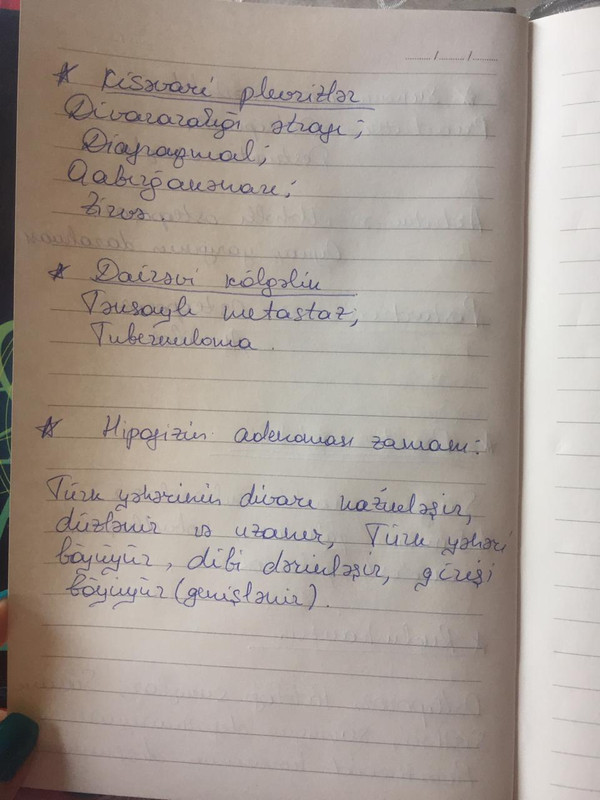 * Kisəvari plevritlər
Divararalığı ətrafı;
Diafraqmal;
Qabırğakənarı;
Zirvə
* Dairəvi kölgəlik
Təksaylı metastaz,
Tuberkuloma.
* Hipofizin adenoması zamanı:
Türk yəhərinin divarı nazikləşir,
düzlənir və uzanır, Türk yəhəri
böyüyür, dibi dərinləşir, girişi
böyüyür (genişlənir).